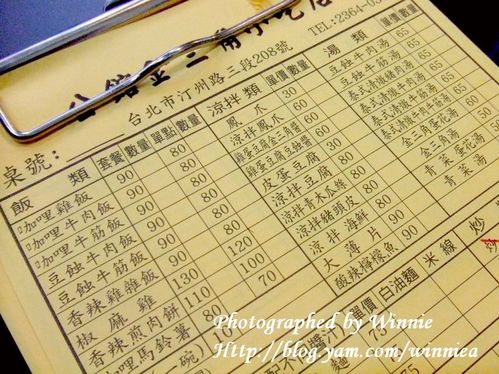 公館金三角小吃店
TEL:2364-03
台北市汀州路三段208號
桌號:
飯類 套餐 數量 單點 數量
咖哩雞飯 90 80
咖哩牛肉飯 90 80
咖哩牛筋飯 90 80
豆蝕牛肉飯 90 80
豆蝕牛筋飯 90 80
香辣雞雞飯
椒麻雞 130 120
香辣煎肉餅 110 100
咖哩馬鈴薯 70
涼拌類 單價 數量
鳳爪 30
涼拌鳳爪 60
雞蛋豆腐金三角醬
雞蛋豆腐豆蝕醬 60
皮蛋豆腐 30
涼拌豆腐
涼拌青木瓜絲 80
涼拌豬頭皮
涼拌海鮮
大薄片
酸辣檸檬魚 90
湯類 單價 數量
豆蝕牛肉湯 65
豆蝕牛筋湯 65
泰式清燉豬肉湯 65
泰式清燉牛肉湯 65
泰式清燉牛筋湯 65
金三角蛋花湯 50
金三角湯
青菜蛋花湯
青菜湯
單價 白油麵 米線 炒
Photographed by Winnie
Http://blog.yam.com/winniea